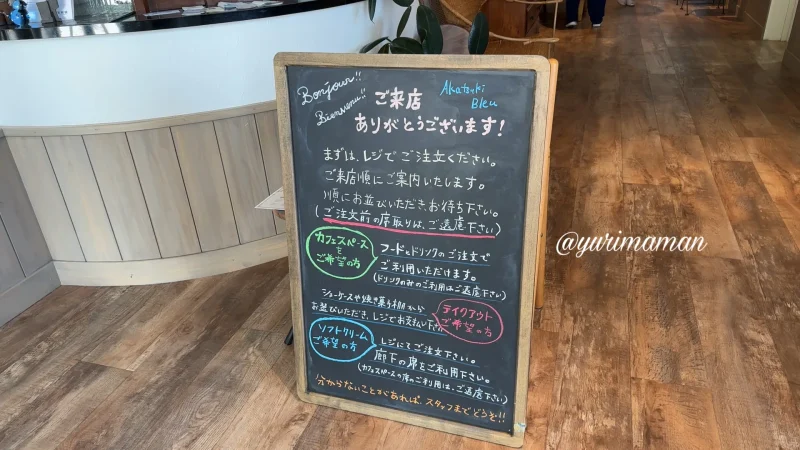 Bonjour!!
Bienvenu!!
Akatsuki
Bleu
ご来店
ありがとうございます!
まずは、レジでご注文ください。
ご来店順にご案内いたします。
順にお並びいただき、お待ち下さい。
(ご注文前の席取りは、ご遠慮下さい)
カフェスペース
を
ご希望の方
フードとドリンクのご注文で
ご利用いただけます。
(ドリンクのみのご利用はご遠慮下さい)
ショーケースや焼き菓子棚から
お並びいただき、レジでお支払い下さい
テイクアウト
ご希望の方
ソフトクリーム
ご希望の方
レジにてご注文下さい。
廊下の席をご利用下さい。
(カフェスペースの席のご利用は、ご遠慮下さい)
分からないことがあれば、スタッフまでどうぞ!!
@yurimaman